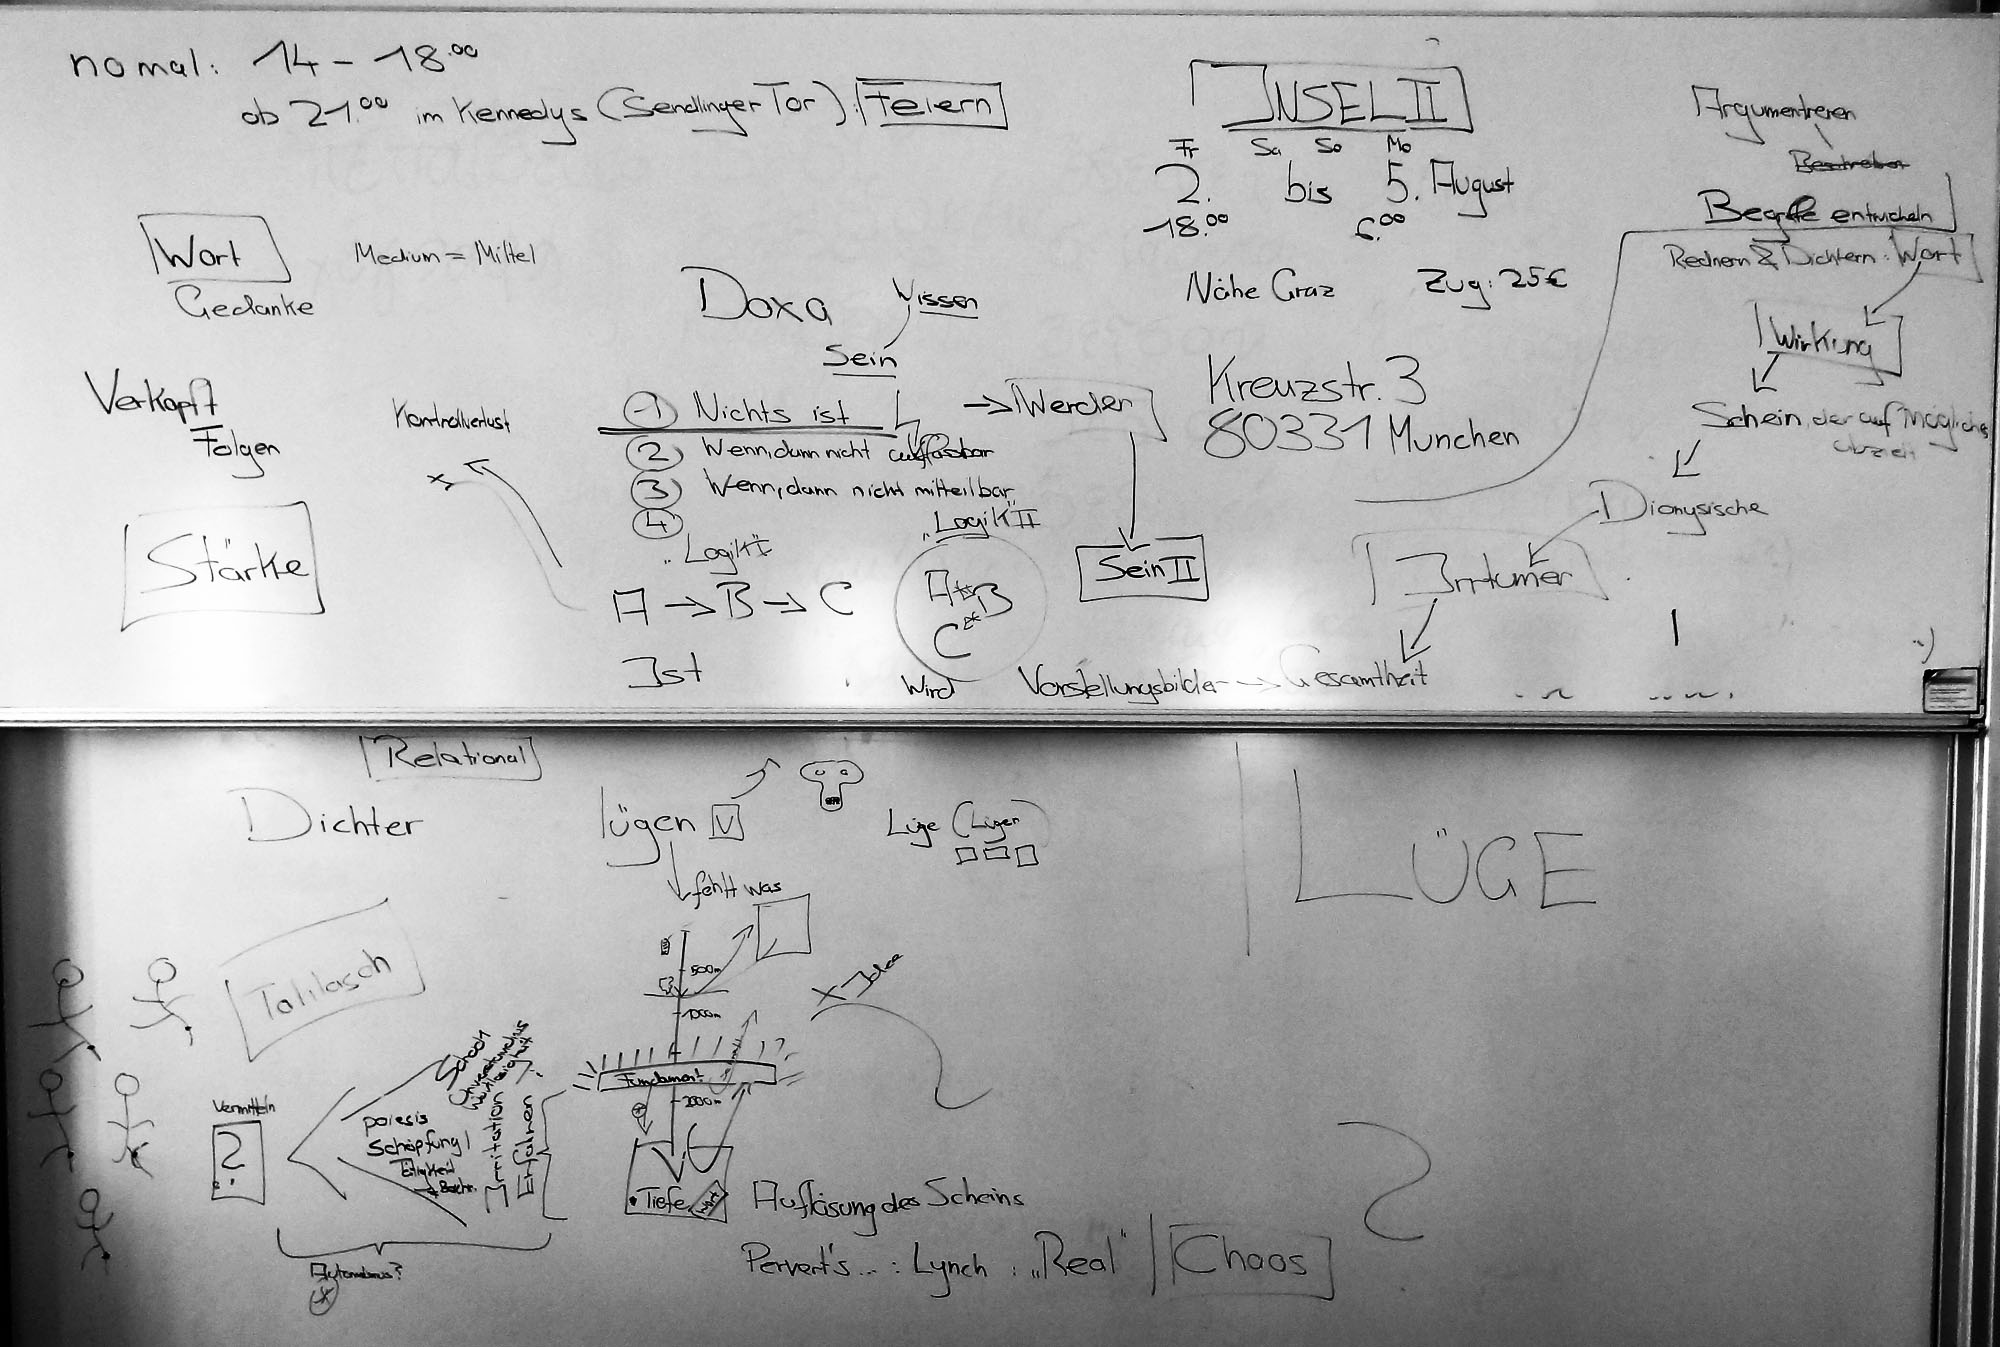 nomal: 14 - 18.00
ab 21.00 im Kennedys (Sendlinger Tor): Feiern
INSEL II
Fr Sa So Mo
2. bis 5. August
18.00 6.00
Nähe Graz Zug: 25€
Kreuzstr. 3
80331 Munchen
Argumentieren
Begriffe entwickeln
Rednern & Dichtern: Wort
Wirkung
Schein, der auf Mögliches
abzielt
Dionysische
Irrtümer
Gesamtheit
Wort
Gedanke
Medium = Mittel
Verkopft
Folgen
Kontrollverlust
Stärke
Doxa
Wissen
Sein
1 Nichts ist
2 Wenn, dann nicht auffassbar
3 Wenn, dann nicht mitteilbar
4
→ Werden
Sein II
„Logik I
„Logik" II
A → B → C
A B
C
Ist
Wird
Vorstellungsbilder →
Relational
Dichter
lügen
Lüge (Lügen)
fehlt was
LÜGE
500m
1000m
Fundament
2000m
Tiefe
Wort
X Idee
Vermitteln
?
poiesis
Schöpfung
Tätigkeit
Schock
Irritation
Erfahren
Automatismus?
Auflösung des Scheins
Pervert's ... : Lynch : „Real" | Chaos